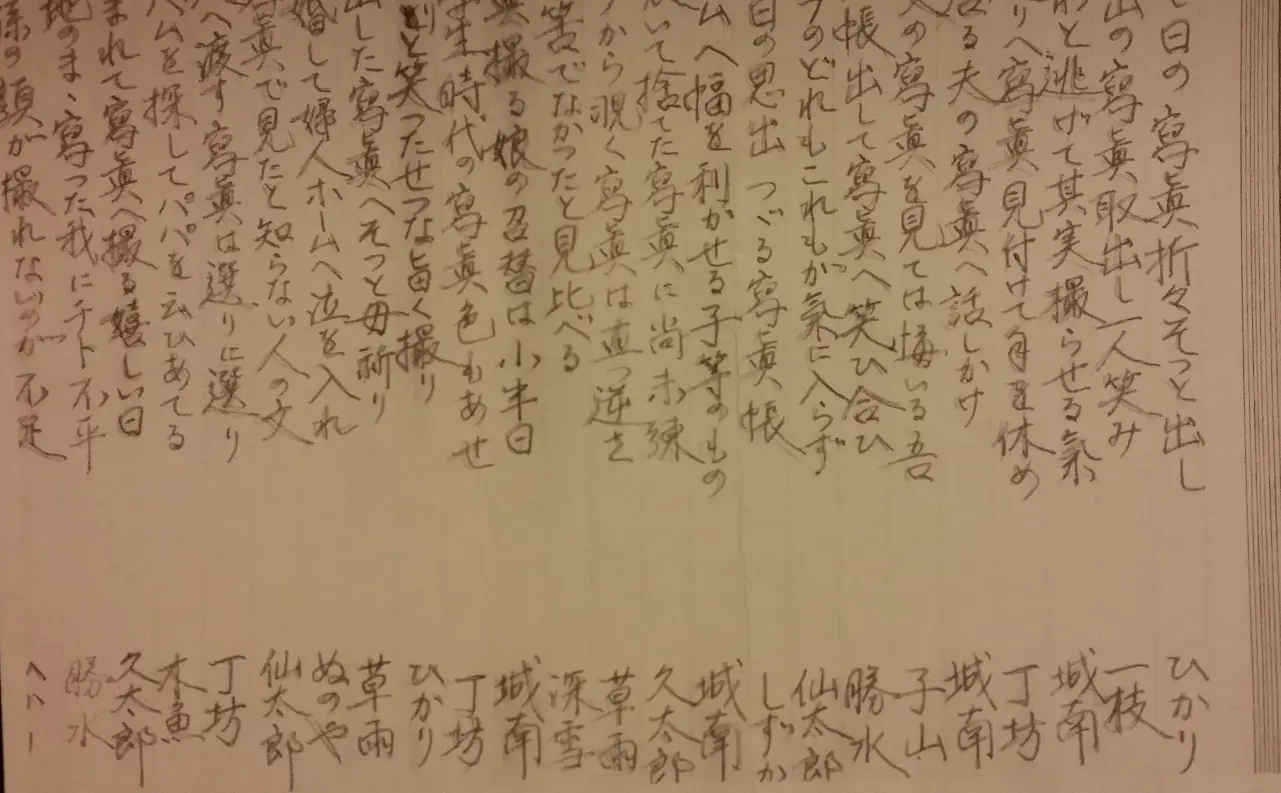 日の寫眞折々そつと出し ひかり
山の寫眞取出し一人笑み 一枝
と逃げて其実撮らせる氣 城南
りへ寫眞見付けて手を休め 丁坊
る夫の寫眞へ話しかけ 城南
の寫眞を見ては悔いる吾 子山
帳出して寫眞へ笑ひ合ひ 勝水
のどれもこれもが氣に入らず 仙太郎
日の思出つゞる寫眞帳 しずか
ムへ幅を利かせる子等のもの 城南
いて捨てた寫眞に尚未練 久太郎
から覗く寫眞は直つ逆さ 草雨
筈でなかつたと見比べる 深雪
撮る娘の召替は小半日 城南
学生時代の寫眞色もあせ 丁坊
と笑つたせつな旨く撮り ひかり
出した寫眞へそつと母祈り 草雨
婚して婦人ホームへ泣を入れ ぬのや
寫眞で見たと知らない人の文 仙太郎
へ渡す寫眞は選りに選り 丁坊
ハムを探してパパを云ひあてる 木魚
まれて寫眞へ撮る嬉しい日 久太郎
地のまゝ寫つた我にチト不平 勝水
孫の顔が撮れないのが不足